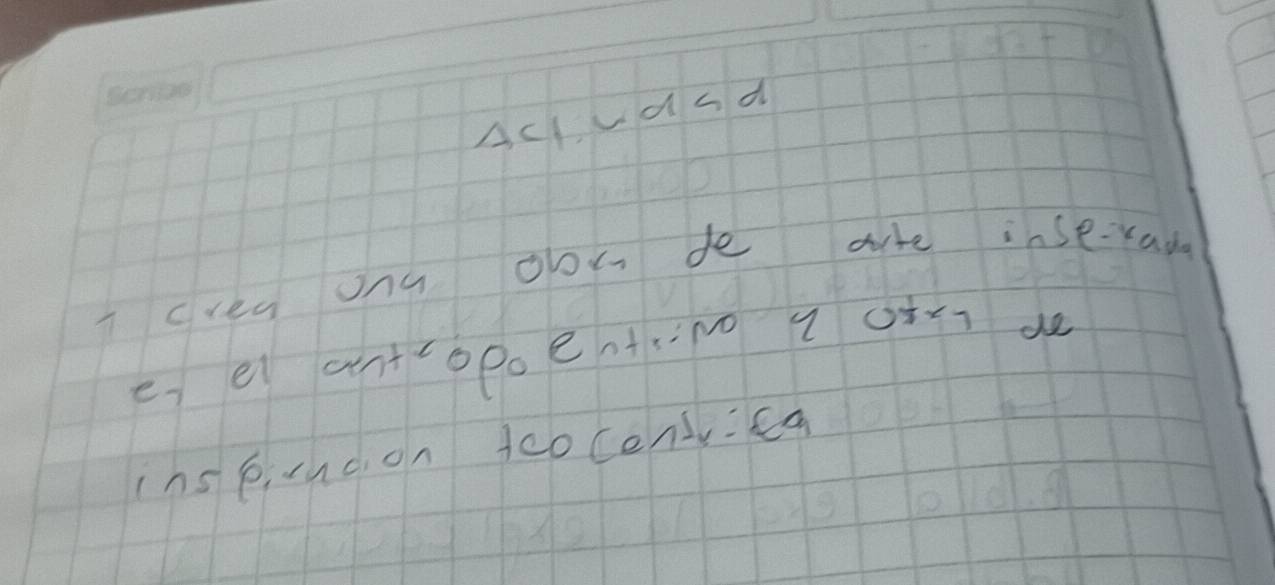 Scribe
Actividad
1 crea una obra de arte inspirada
en el antropoentrino y otra de
inspiracion teocentrica